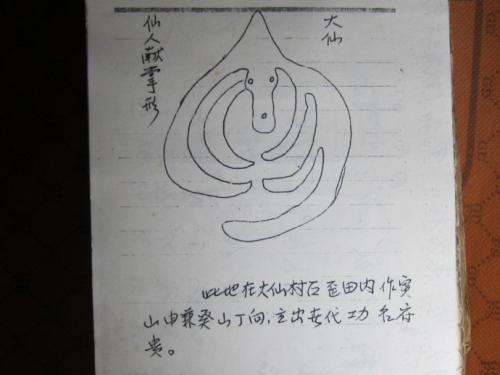 大仙
仙人献掌形
此地在大仙村石歪田内作寅
山申兼癸山丁向,主出代功名
贵。